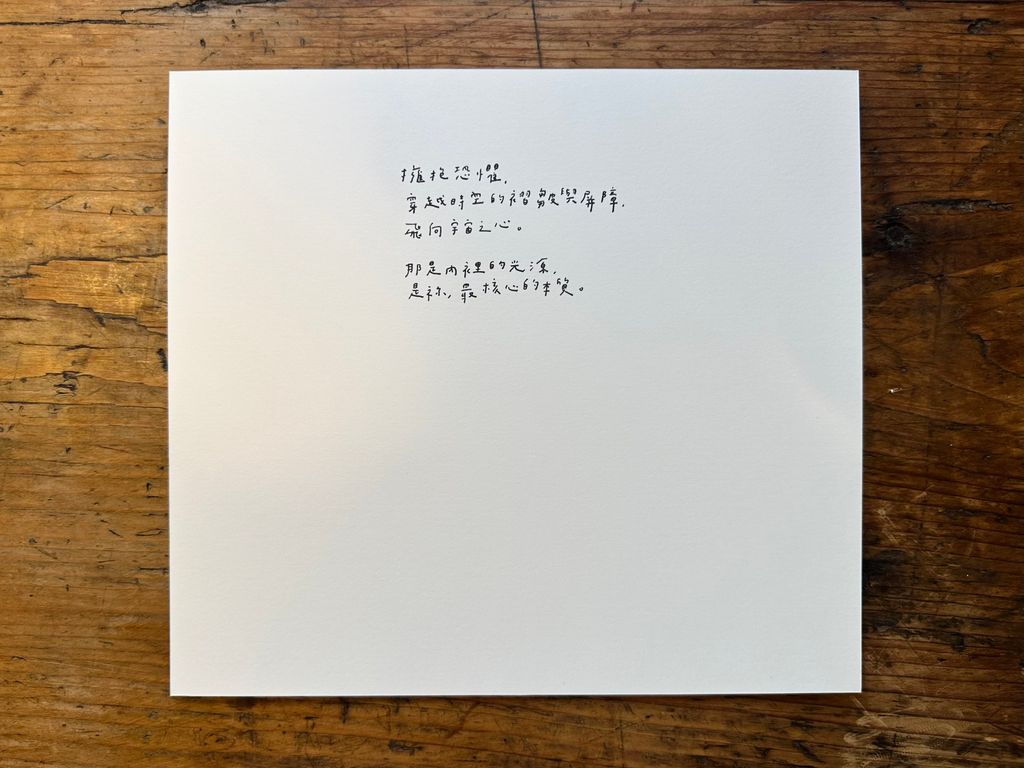 擁抱恐懼,
穿越時空的褶皺與屏障,
飛向宇宙之心。
那是內裡的光源,
是祢,最核心的本質。